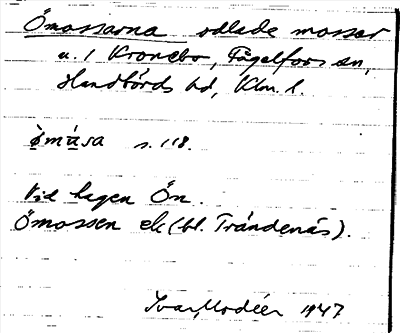 Ömossarna odlade mossar
u. / Kronebo, Fågelfors sn,
Handbörds hd, Klm. l.
ömåsa s. 118.
Vid hagen Ön.
Ömossen ek (bl. Trändenäs).
Ivar Modéer 1947